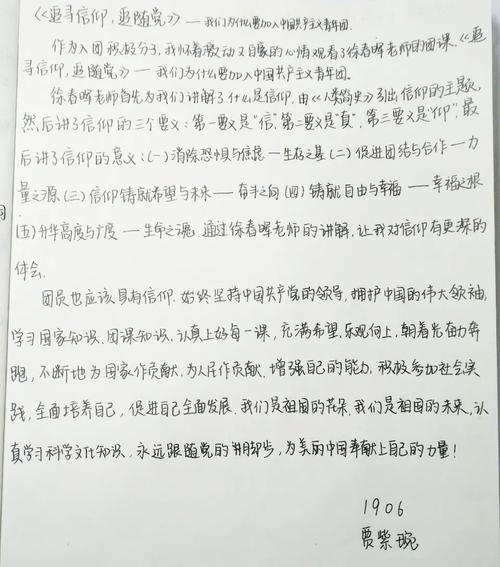 《追寻信仰，追随党》——我们为什么要加入中国共产主义青年团.
作为入团积极分子，我怀着激动又自豪的心情观看了徐春晖老师的团课.《追
寻信仰，追随党》——我们为什么要加入中国共产主义青年团.
徐春晖老师首先为我们讲解了什么是信仰.由《人类简史》引出信仰的主题,
然后讲了信仰的三个要义：第一要义是“信”,第二要义是“真”,第三要义是“仰”,最
后讲了信仰的意义：(一)消除恐惧与焦虑——生存之基(二)促进团结与合作——力
量之源(三)信仰铸就希望与未来——奋斗之向(四)铸就自由与幸福——幸福之根
(五)升华高度与广度——生命之魂.通过徐春晖老师的讲解,让我对信仰有更深的
体会.
团员也应该具有信仰.始终坚持中国共产党的领导,拥护中国的伟大领袖,
学习国家知识、团课知识、认真上好每一课，充满希望、乐观向上,朝着光奋力奔
跑，不断地为国家作贡献、为人民作贡献.增强自己的能力,积极参加社会实
践,全面培养自己，促进自己全面发展.我们是祖国的花朵.我们是祖国的未来,认
真学习科学文化知识、永远跟随党的讲脚步，为美丽中国奉献上自己的力量！
1906
贾紫琬